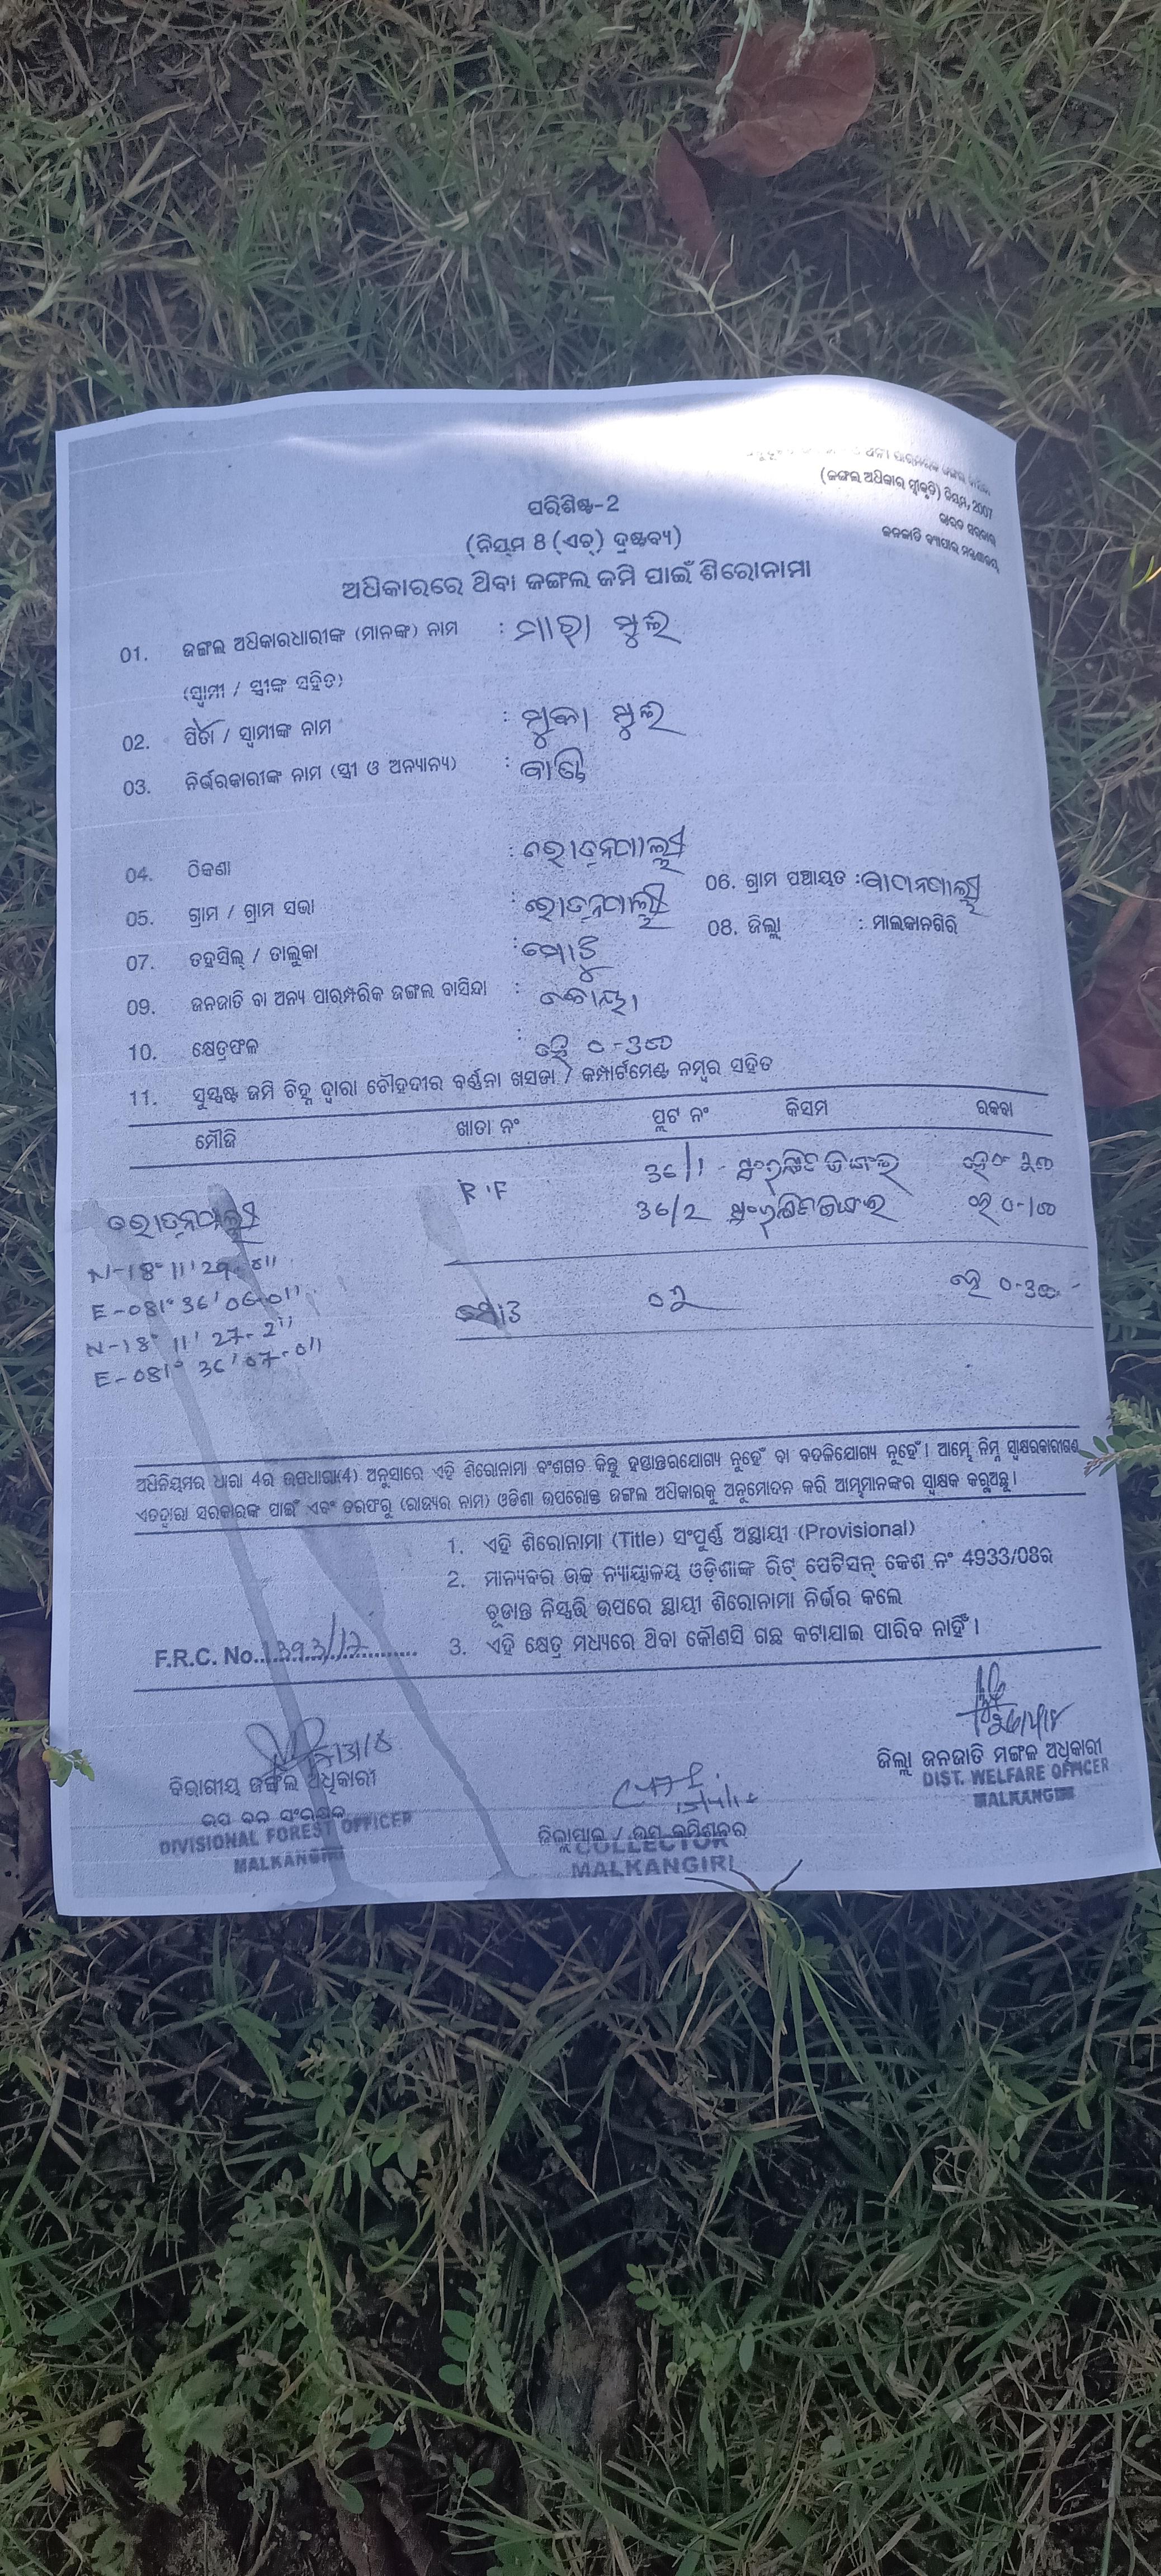 ପାରମ୍ପରିକ ଜଙ୍ଗଲ
(ଜଙ୍ଗଲ ଅଧିକାର ସ୍ୱୀକୃତି) ନିୟମ, 2007
ଭାରତ ସରକାର
ଜନଜାତି ବ୍ୟାପାର ମନ୍ତ୍ରଣାଳୟ
ପରିଶିଷ୍ଟ-2
(ନିୟମ 8 (ଏଚ୍) ଦ୍ରଷ୍ଟବ୍ୟ)
ଅଧିକାରରେ ଥିବା ଜଙ୍ଗଲ ଜମି ପାଇଁ ଶିରୋନାମା
01. ଜଙ୍ଗଲ ଅଧିକାରଧାରୀଙ୍କ (ମାନଙ୍କ) ନାମ :
(ସ୍ୱାମୀ / ସ୍ତ୍ରୀଙ୍କ ସହିତ)
02. ପିତା / ସ୍ୱାମୀଙ୍କ ନାମ :
03. ନିର୍ଭରକାରୀଙ୍କ ନାମ (ସ୍ତ୍ରୀ ଓ ଅନ୍ୟାନ୍ୟ) :
04. ଠିକଣା :
05. ଗ୍ରାମ / ଗ୍ରାମ ସଭା : 06. ଗ୍ରାମ ପଞ୍ଚାୟତ :
07. ତହସିଲ୍ / ତାଲୁକା : ମୋଟୁ 08. ଜିଲ୍ଲା : ମାଲକାନଗିରି
09. ଜନଜାତି ବା ଅନ୍ୟ ପାରମ୍ପରିକ ଜଙ୍ଗଲ ବାସିନ୍ଦା : କୋୟା
10. କ୍ଷେତ୍ରଫଳ : ହେ ୦-୩୦୦
11. ସୁସ୍ପଷ୍ଟ ଜମି ଚିହ୍ନ ଦ୍ୱାରା ଚୌହଦୀର ବର୍ଣ୍ଣନା ଖସଡା / କମ୍ପାର୍ଟମେଣ୍ଟ ନମ୍ବର ସହିତ
ମୌଜି ଖାତା ନଂ ପ୍ଲଟ ନଂ କିସମ ରକବା
R.F 36/1
36/2 ହେ ୦-୧୦୦
N-18° 11' 29.
E-081° 36' 06-0"
N-18° 11' 27-2"
E-081° 36' 07-0"
ମୋଟ ୦୨ ହେ ୦-୩୦୦
ଅଧିନିୟମର ଧାରା 4ର ଉପଧାରା(4) ଅନୁସାରେ ଏହି ଶିରୋନାମା ବଂଶଗତ କିନ୍ତୁ ହସ୍ତାନ୍ତରଯୋଗ୍ୟ ନୁହେଁ ବା ବଦଳିଯୋଗ୍ୟ ନୁହେଁ । ଆମ୍ଭେ ନିମ୍ନ ସ୍ୱାକ୍ଷରକାରୀଗଣ
ଏତଦ୍ଦ୍ୱାରା ସରକାରଙ୍କ ପାଇଁ ଏବଂ ତରଫରୁ (ରାଜ୍ୟର ନାମ) ଓଡିଶା ଉପରୋକ୍ତ ଜଙ୍ଗଲ ଅଧିକାରକୁ ଅନୁମୋଦନ କରି ଆମ୍ଭମାନଙ୍କର ସ୍ୱାକ୍ଷକ କରୁଅଛୁ ।
1. ଏହି ଶିରୋନାମା (Title) ସଂପୂର୍ଣ୍ଣ ଅସ୍ଥାୟୀ (Provisional)
2. ମାନ୍ୟବର ଉଚ୍ଚ ନ୍ୟାୟାଳୟ ଓଡ଼ିଶାଙ୍କ ରିଟ୍ ପେଟିସନ୍ କେଶ ନଂ 4933/08ର
ଚୂଡାନ୍ତ ନିସ୍ପତ୍ତି ଉପରେ ସ୍ଥାୟୀ ଶିରୋନାମା ନିର୍ଭର କଲେ
3. ଏହି କ୍ଷେତ୍ର ମଧ୍ୟରେ ଥିବା କୌଣସି ଗଛ କଟାଯାଇ ପାରିବ ନାହିଁ ।
F.R.C. No.
ବିଭାଗୀୟ ଜଙ୍ଗଲ ଅଧିକାରୀ
ଉପ ବନ ସଂରକ୍ଷକ
DIVISIONAL FOREST OFFICER
MALKANGIRI
ଜିଲ୍ଲାପାଳ / ଉପ କମିଶନର
COLLECTOR
MALKANGIRI
ଜିଲ୍ଲା ଜନଜାତି ମଙ୍ଗଳ ଅଧିକାରୀ
DIST. WELFARE OFFICER
MALKANGIRI